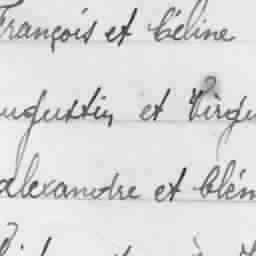 François et Céline
Augustin et Virgi
Alexandre et Clém